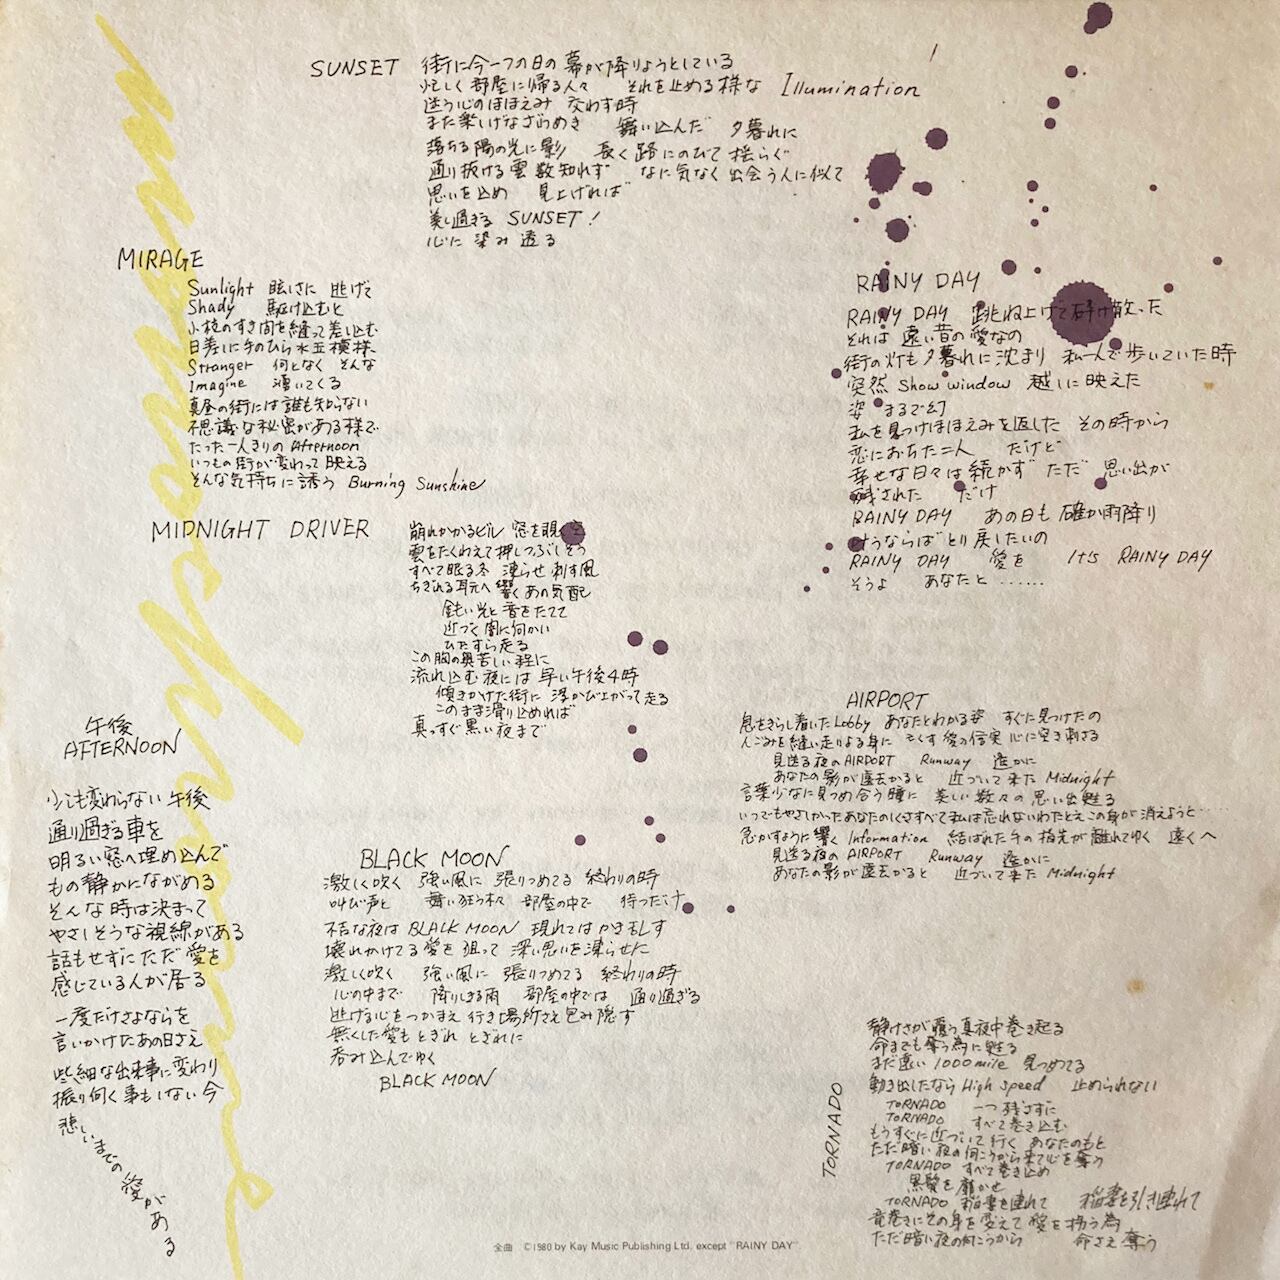 monochrome
SUNSET
街に今一つの日の幕が降りようとしている
忙しく部屋に帰る人々 それを止める様な Illumination
迷う心のほほえみ 交わす時
また楽しげなざわめき 舞い込んだ 夕暮れに
落ちる陽の光に影 長く路にのびて揺らぐ
通り抜ける雲 数知れず なに気なく出会う人に似て
思いを止め 見上げれば
美し過ぎる SUNSET!
心に染み透る
MIRAGE
Sunlight 眩しさに 逃げて
Shady 駆け込むと
小枝のすき間を縫って差し込む
日差しに手のひら水玉模様
Stranger 何となく そんな
Imagine 湧いてくる
真昼の街には誰も知らない
不思議な秘密がある様で
たった一人きりの Afternoon
いつもの街が変わって映える
そんな気持ちに誘う Burning Sunshine
RAINY DAY
RAINY DAY 跳ね上げて砕け散った
それは 遠い昔の愛なの
街の灯も夕暮れに沈まり 私一人で歩いていた時
突然 Show window 越しに映えた
姿 まるで幻
私を見つけほほえみを返した その時から
恋におちた二人 だけど
幸せな日々は続かず ただ 思い出が
残された だけ
RAINY DAY あの日も確か雨降り
叶うならば とり戻したいの
RAINY DAY 愛を It's RAINY DAY
そうよ あなたと ……
MIDNIGHT DRIVER
崩れかかるビル 窓を覗く空
雲をたくわえて押しつぶしそう
すべて眠る冬 凍らせ刺す風
ちぎれる耳元へ響くあの気配
鈍い光と音をたてて
近づく闇に向かい
ひたすら走る
この胸の奥苦しい程に
流れ込む夜には早い午後4時
傾きかけた街に 浮かび上がって走る
このまま滑り込めれば
真っすぐ黒い夜まで
午後
AFTERNOON
少しも変わらない午後
通り過ぎる車を
明るい窓へ埋め込んで
もの静かにながめる
そんな時は決まって
やさしそうな視線がある
話もせずにただ愛を
感じている人が居る
一度だけさよならを
言いかけたあの日さえ
些細な出来事に変わり
振り向く事もしない今
悲しいまでの愛がある
AIRPORT
息をきらし着いたLobby あなたとわかる姿 すぐに見つけたの
人ごみを縫い走りよる身に そくす愛の信実 心に突き刺さる
見送る夜のAIRPORT Runway 遙かに
あなたの影が遠去かると 近づいて来た Midnight
言葉少なに見つめ合う瞳に 美しい数々の思い出甦る
いつでもやさしかったあなたのしぐさすべて私は忘れないわたとえこの身が消えようと…
急かすように響く Information 結ばれた手の指先が離れてゆく 遠くへ
見送る夜のAIRPORT Runway 遙かに
あなたの影が遠去かると 近づいて来た Midnight
BLACK MOON
激しく吹く 強い風に 張りつめてる 終わりの時
叫び声と 舞い狂う木々 部屋の中で 待つだけ
不吉な夜は BLACK MOON 現れてはかき乱す
壊れかけてる愛を狙って 深い思いを凍らせた
激しく吹く 強い風に 張りつめてる 終わりの時
心の中まで 降りしきる雨 部屋の中では 通り過ぎる
逃げる心をつかまえ 行き場所さえ包み隠す
無くした愛も とぎれ とぎれに
呑み込んでゆく
BLACK MOON
TORNADO
静けさが覆う真夜中巻き起る
命までも奪う為に甦る
まだ遠い 1000mile 見つめてる
動き出したなら High speed 止められない
TORNADO 一つ残さずに
TORNADO すべて巻き込む
もうすぐに近づいて行く あなたのもと
ただ暗い夜の向こうから来て心を奪う
TORNADO すべて巻き込め
黒髪を靡かせ
TORNADO 稲妻を連れて 稲妻を引き連れて
竜巻きにその身を変えて愛を拐う為
ただ暗い夜の向こうから 命さえ奪う
全曲 ©1980 by Kay Music Publishing Ltd. except "RAINY DAY".